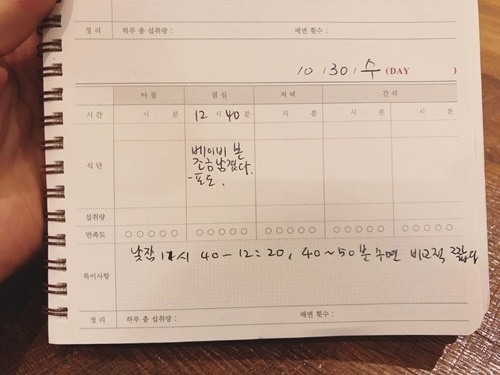 정 리 하루 총 섭취량 : 배변 횟수 :
10 / 30 / 수 (DAY )
아 침 점 심 저 녁 간 식
시 간 시 분 12 시 40 분 시 분 시 분 시 분
식 단 베이비 본
조금 남겼다.
- 포도.
섭취량
만족도 ○ ○ ○ ○ ○ ○ ○ ○ ○ ○ ○ ○ ○ ○ ○ ○ ○ ○ ○ ○ ○ ○ ○ ○ ○
특이사항 낮잠 11시 40 - 12:20, 40~50분 수면 비교적 짧다
정 리 하루 총 섭취량 : 배변 횟수 :